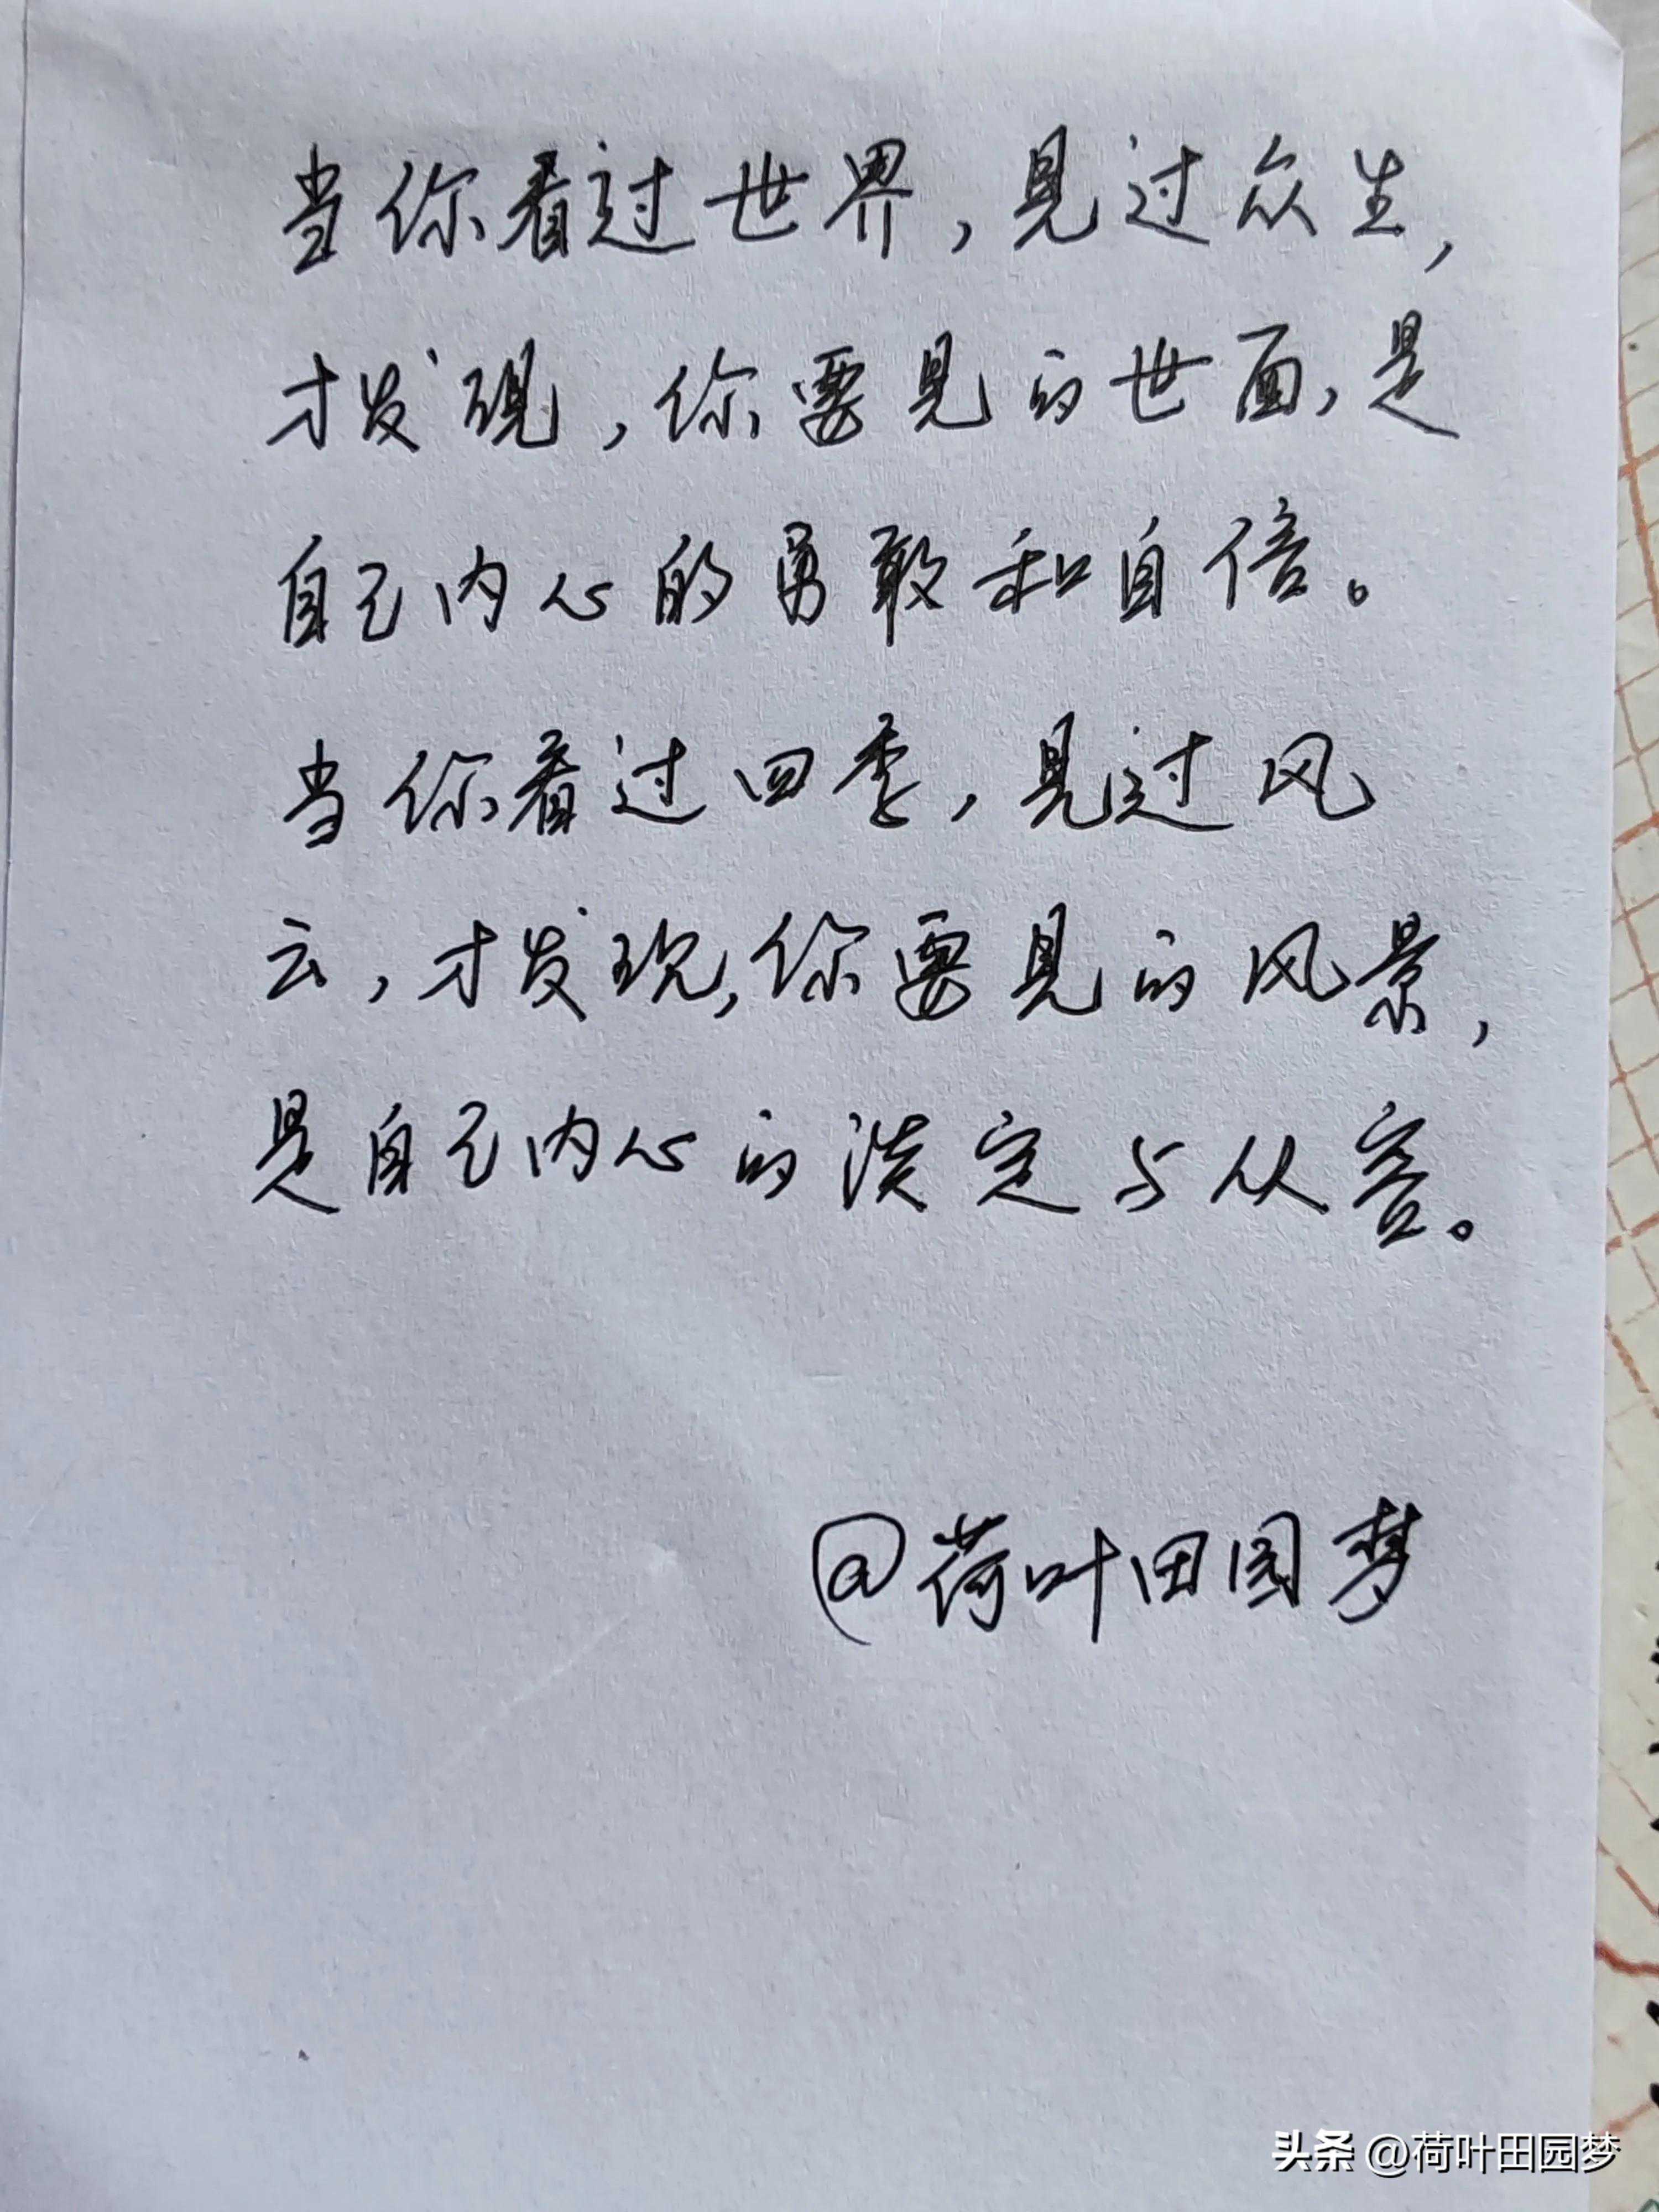 当你看过世界，见过众生，
才发现，你要见的世面，是
自己内心的勇敢和自信。
当你看过四季，见过风
云，才发现，你要见的风景，
是自己内心的淡定与从容。
@荷叶田园梦
头条 @荷叶田园梦